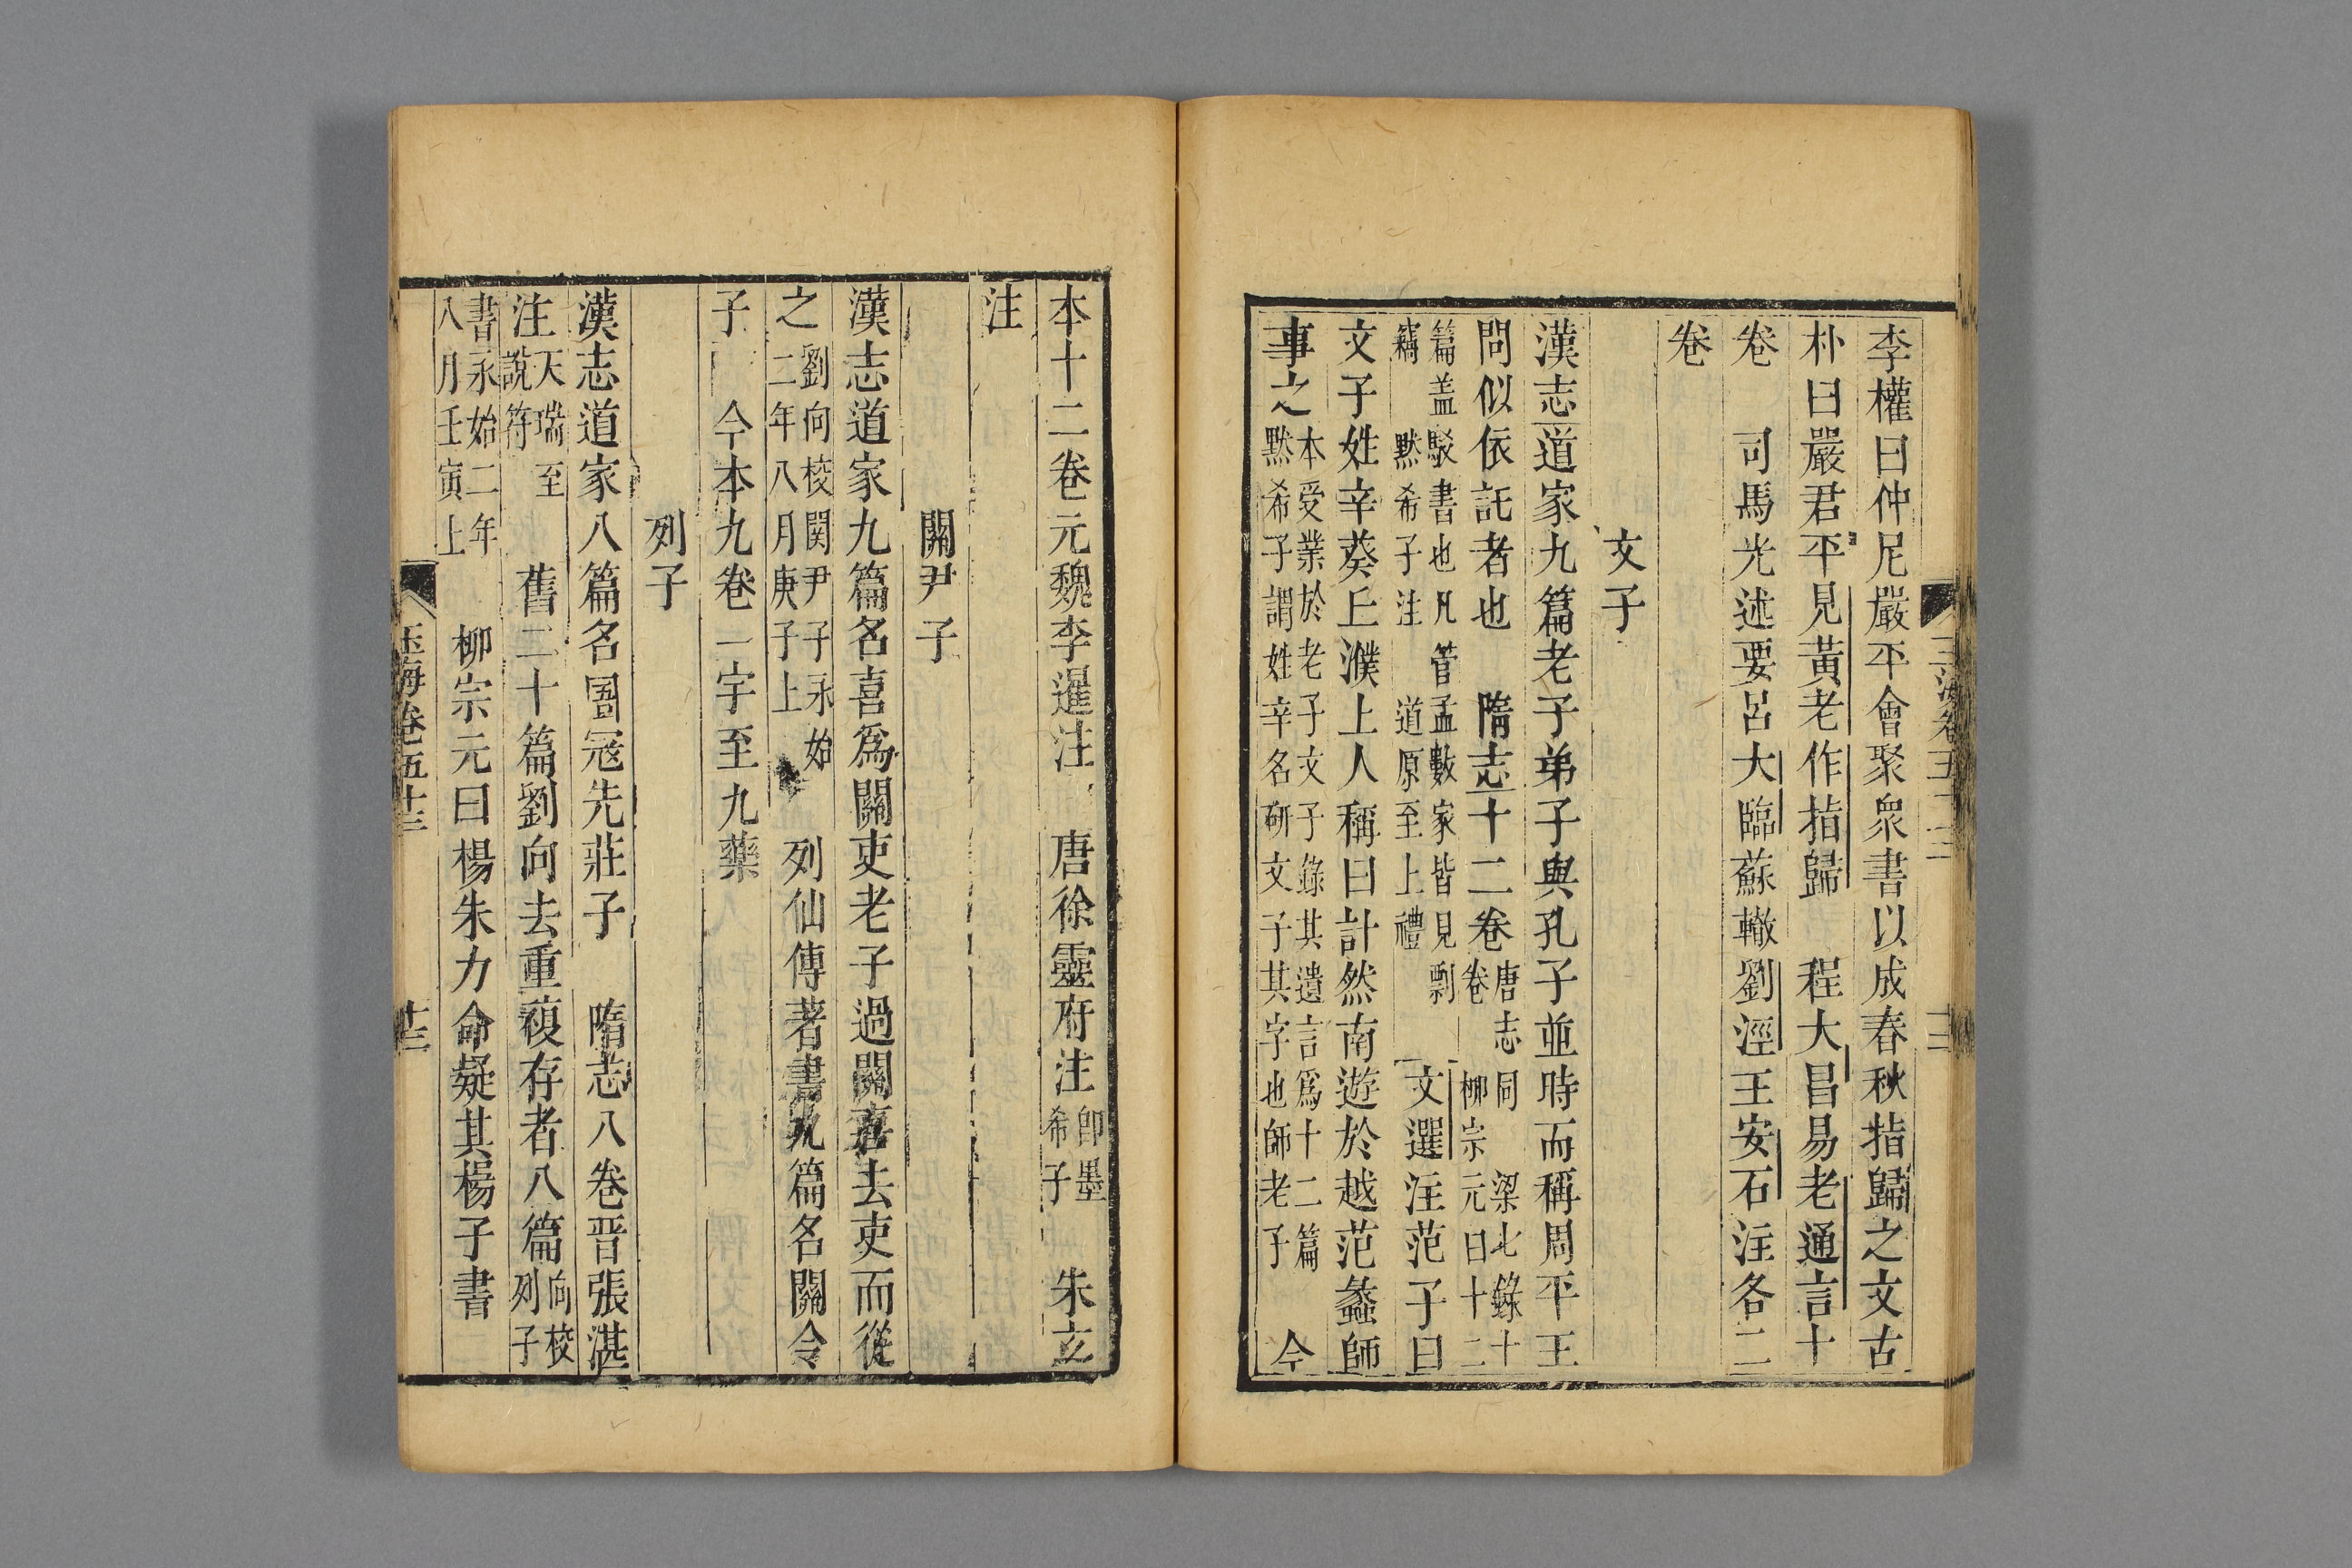 李權曰仲尼嚴平會聚衆書以成春秋指歸之文古
朴曰嚴君平見黃老作指歸　程大昌易老通言十
卷　司馬光述要呂大臨蘇轍劉涇王安石注各二
卷
文子
漢志道家九篇老子弟子與孔子並時而稱周平王
問似依託者也　隋志十二卷唐志同　梁七錄十卷　柳宗元曰十二
篇盖駁書也凡管孟數家皆見剽竊　黙希子注　道原至上禮　文選注范子曰
文子姓辛葵丘濮上人稱曰計然南遊於越范蠡師
事之本受業於老子文子錄其遺言爲十二篇黙希子謂姓辛名硏文子其字也師老子　今
本十二卷元魏李暹注　唐徐靈府注卽墨希子　朱玄
注
關尹子
漢志道家九篇名喜爲關吏老子過關喜去吏而從
之劉向校関尹子永始二年八月庚子上　列仙傳著書九篇名關令
子　今本九卷一宇至九藥
列子
漢志道家八篇名圄寇先莊子　隋志八卷晋張湛
注天瑞至說符　舊二十篇劉向去重複存者八篇向校列子
書永始二年八月壬寅上　柳宗元曰楊朱力命疑其楊子書
玉海卷五十三
十三